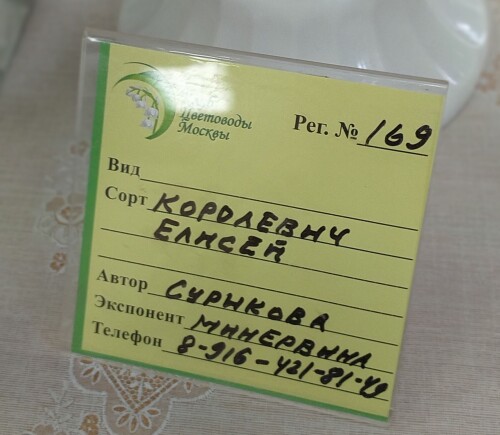 Цветоводы
Москвы
Рег. № 169
Вид
Сорт КОРОЛЕВИЧ
ЕЛИСЕЙ
Автор СУРИКОВА
Экспонент МИНЕРВИНА
Телефон 8-916-421-81-49